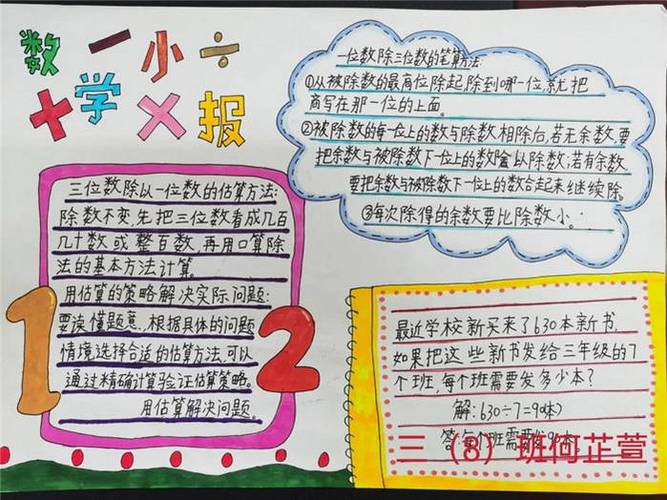 数 一 小 ÷
+ 学 × 报
一位数除三位数的笔算方法:
①从被除数的最高位除起除到哪一位,就把
商写在那一位的上面。
②被除数的每一位上的数与除数相除后,若无余数,要
把余数与被除数下一位上的数 以除数;若有余数,
要把余数与被除数下一位上的数合起来继续除。
③每次除得的余数要比除数小。
三位数除以一位数的估算方法:
除数不变,先把三位数看成几百
几十数或整百数,再用口算除
法的基本方法计算。
用估算的策略解决实际问题:
要读懂题意,根据具体的问题
情境选择合适的估算方法,可以
通过精确计算验证估算策略。
用估算解决问题。
1
2
最近学校新买来了630本新书,
如果把这些新书发给三年级的7
个班,每个班需要发多少本?
解:630÷7=90(本)
答:每个班需要发90本。
三(8)班何芷萱